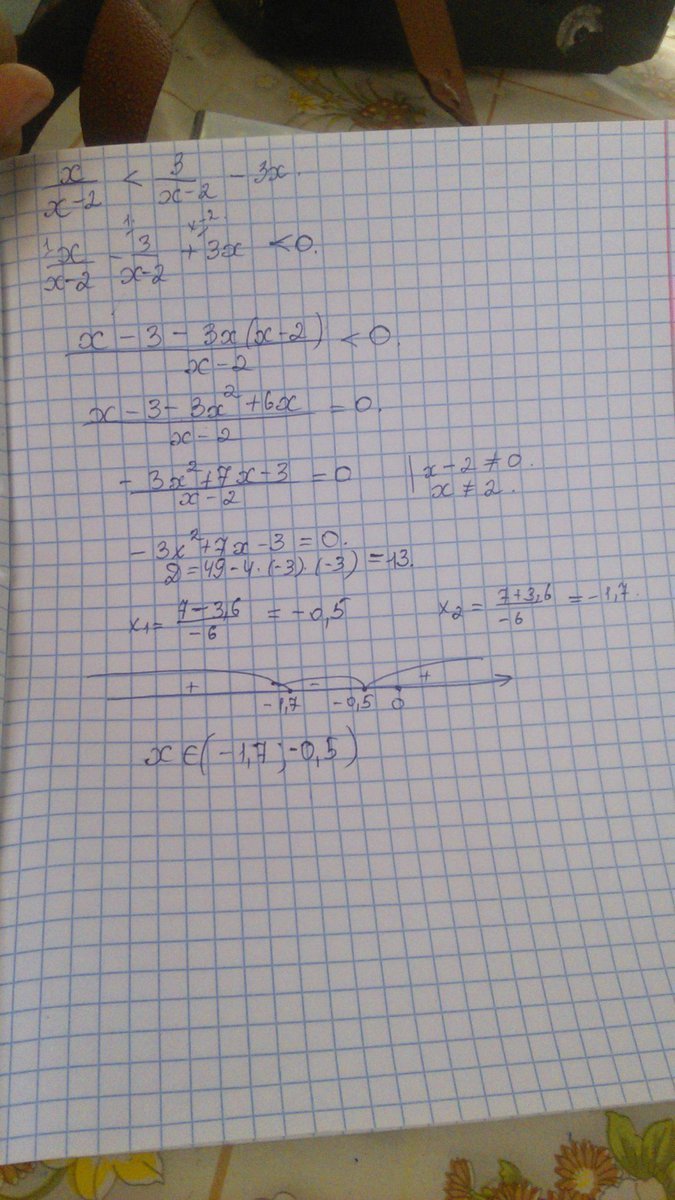 x/(x-2) < 3/(x-2) - 3x.
1) x/(x-2) - 1) 3/(x-2) + x-2) 3x < 0.
(x - 3 - 3x(x-2))/(x-2) < 0.
(x - 3 - 3x² + 6x)/(x-2) = 0.
(- 3x² + 7x - 3)/(x-2) = 0 | x - 2 ≠ 0.
x ≠ 2.
- 3x² + 7x - 3 = 0.
D = 49 - 4·(-3)·(-3) = 13.
x₁ = (7 - 3,6)/(-6) = - 0,5 x₂ = (7+3,6)/(-6) = -1,7.
+ - +
-1,7 -0,5 0
x ∈ (-1,7 ; -0,5)